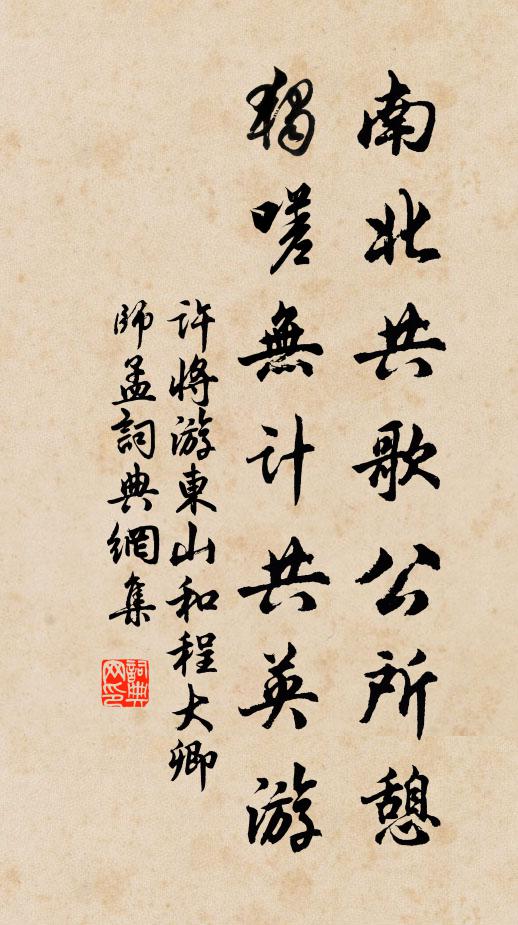 南北共歌公所憩
獨嗟無计共英游
許將游東山和程大卿
師孟詞典網集
詞典
网印